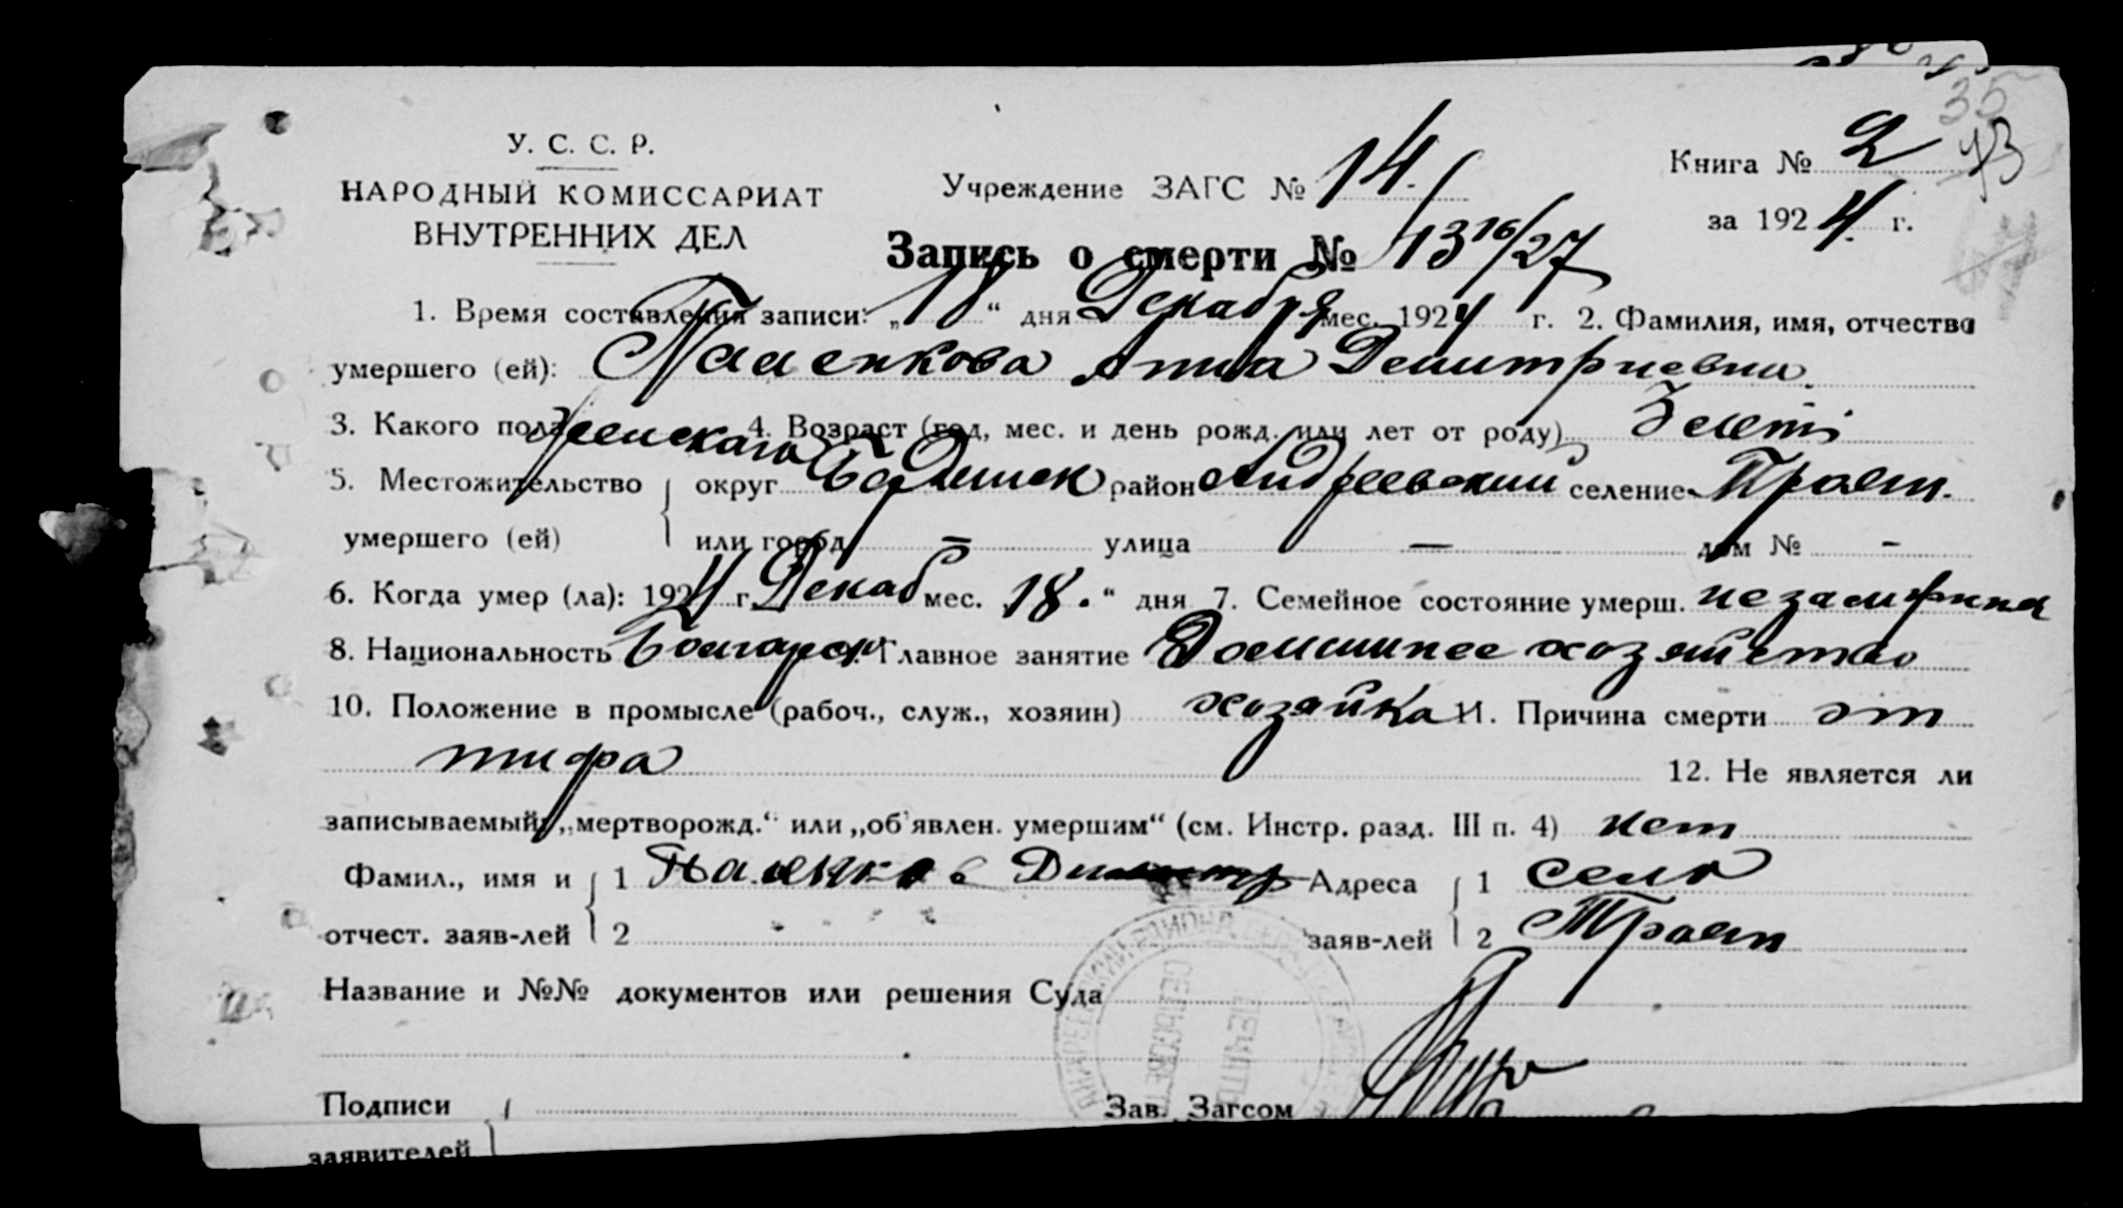 35
У. С. С. Р.
НАРОДНЫЙ КОМИССАРИАТ
ВНУТРЕННИХ ДЕЛ
Учреждение ЗАГС № 14.
Книга № 2
за 1924 г.
Запись о смерти № 13 16/27
1. Время составления записи: „18“ дня Декабря мес. 1924 г. 2. Фамилия, имя, отчество
умершего (ей): Паленкова Анна Демитриевна
3. Какого пола женскаго 4. Возраст (год, мес. и день рожд. или лет от роду)
5. Местожительство округ район Андреевский селение Троян.
умершего (ей) или город — улица — дом № -
6. Когда умер (ла): 1924 г. Декаб мес. 18. “ дня 7. Семейное состояние умерш. незамужна
8. Национальность Болгарск Главное занятие Домашнее хозяйство
10. Положение в промысле (рабоч., служ., хозяин) хозяйка 11. Причина смерти от
тифа
12. Не является ли
записываемый „мертворожд.“ или „об'явлен. умершим“ (см. Инстр. разд. III п. 4) нет
Фамил., имя и 1 Паленков Димитр Адреса 1 село
отчест. заяв-лей 2 заяв-лей 2 Троян
Название и №№ документов или решения Суда
Подписи Зав. Загсом
заявителей